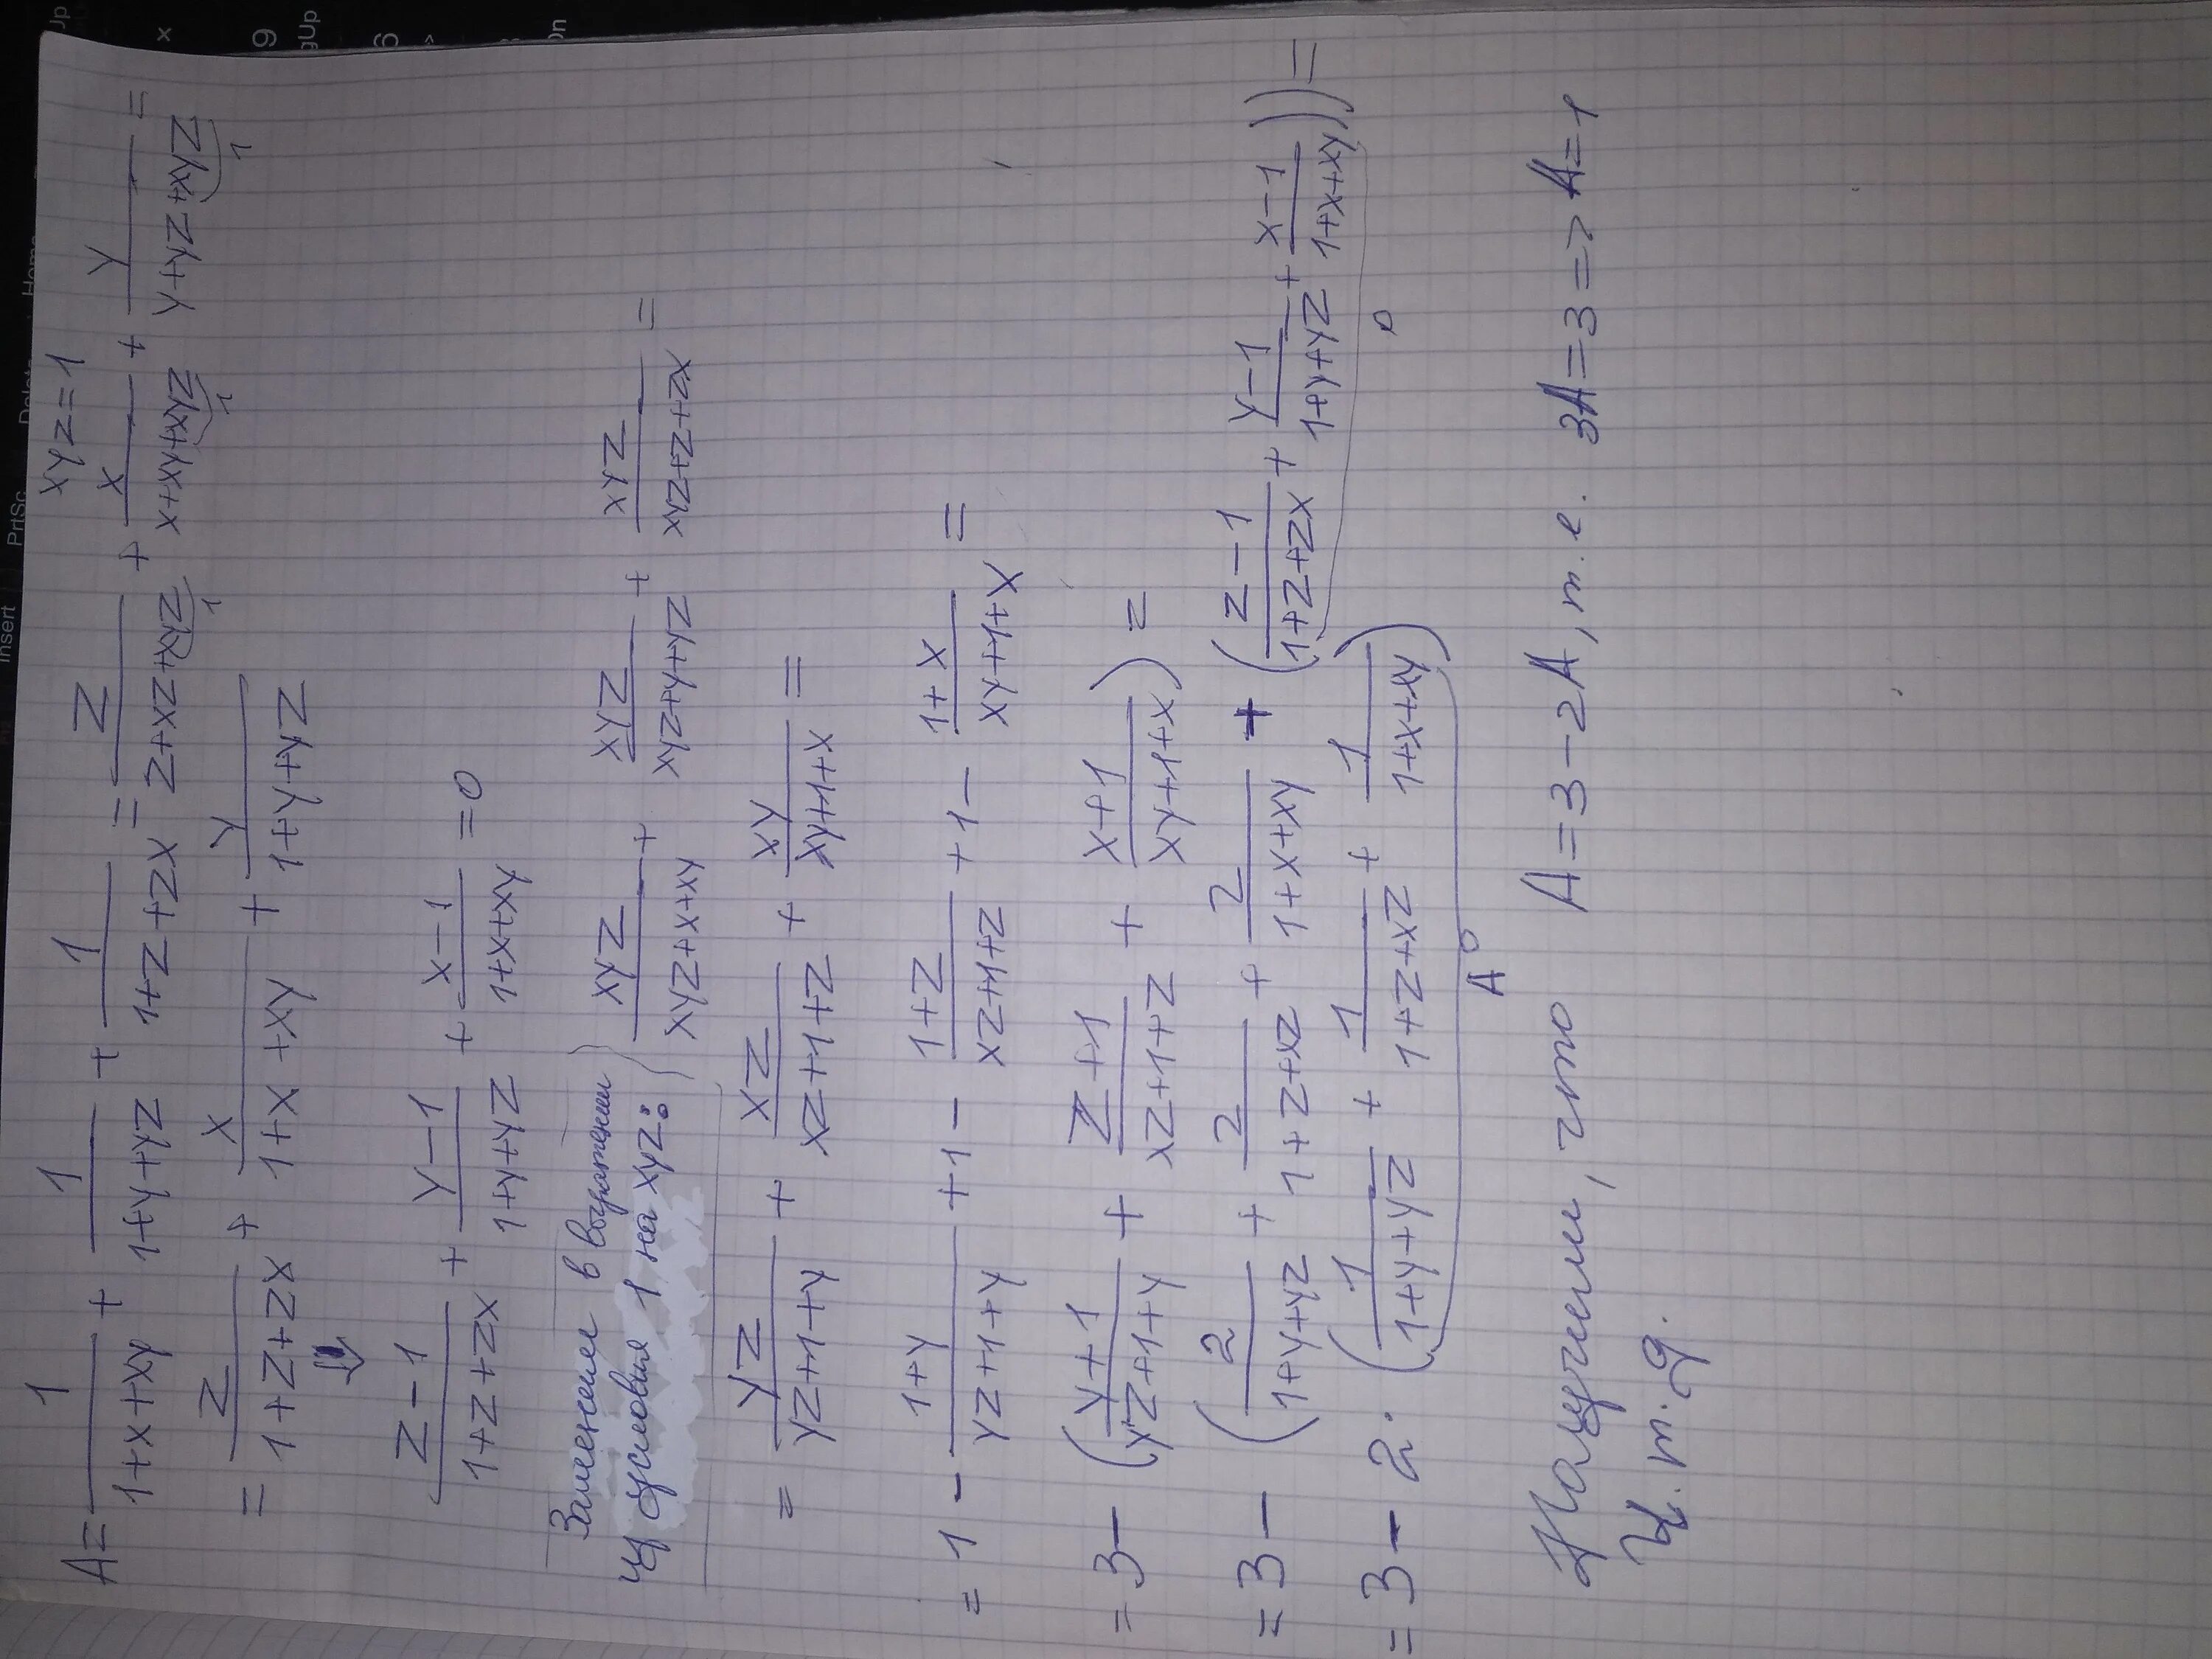 xyz = 1
A = 1/(1+x+xy) + 1/(1+y+yz) + 1/(1+z+zx) = z/(z+xz+xyz) + x/(x+xy+xyz) + y/(y+yz+xyz) =
1 1 1
= z/(1+z+zx) + x/(1+x+xy) + y/(1+y+yz)
⇓
(z-1)/(1+z+zx) + (y-1)/(1+y+yz) + (x-1)/(1+x+xy) = 0
Заменяем в выражении
из условия 1 на xyz:
xyz/(xyz+x+xy) + xyz/(xyz+y+yz) + xyz/(xyz+z+zx) =
= yz/(yz+1+y) + xz/(xz+1+z) + xy/(xy+1+x) =
= 1 - (1+y)/(yz+1+y) + 1 - (1+z)/(xz+1+z) + 1 - (1+x)/(xy+1+x) =
= 3 - ((y+1)/(yz+1+y) + (z+1)/(xz+1+z) + (x+1)/(xy+1+x)) =
= 3 - (2/(1+y+yz) + 2/(1+z+xz) + 2/(1+x+xy) + ((z-1)/(1+z+zx) + (y-1)/(1+y+yz) + (x-1)/(1+x+xy))) =
0
= 3 - 2·(1/(1+y+yz) + 1/(1+z+xz) + 1/(1+x+xy))
A
Получили, что A = 3-2A, т.е. 3A = 3 => A = 1
Ч.т.д.
Insert
PrtSc
Delete
Home
9
gUp
6